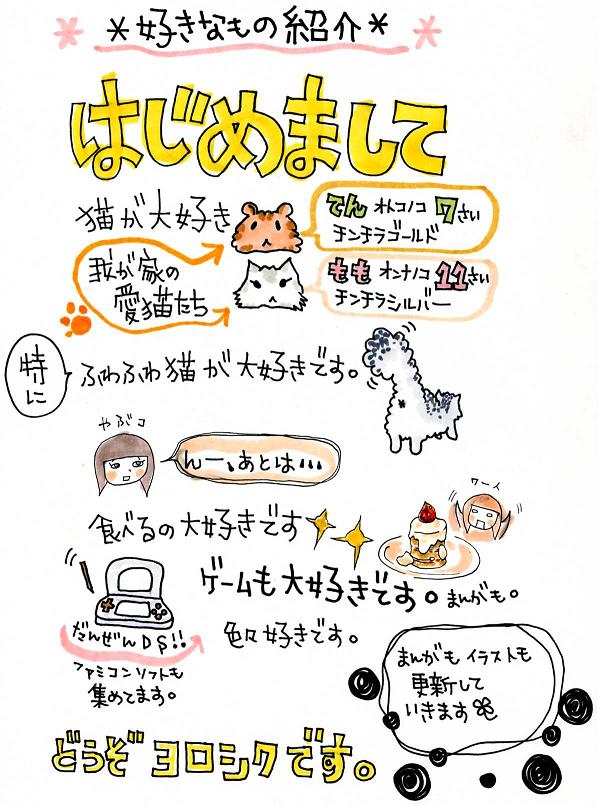 *好きなもの紹介*
はじめまして
猫が大好き
てん オトコノコ 7さい
チンチラゴールド
我が家の
愛猫たち
もも オンナノコ 11さい
チンチラシルバー
特に
ふわふわ猫が大好きです。
やぶコ
んー、あとは・・・
ワーイ
食べるの大好きです
ゲームも大好きです。まんがも。
だんぜんDS!!
色々好きです。
ファミコンソフトも
集めてます。
まんがもイラストも
更新して
いきます
どうぞヨロシクです。